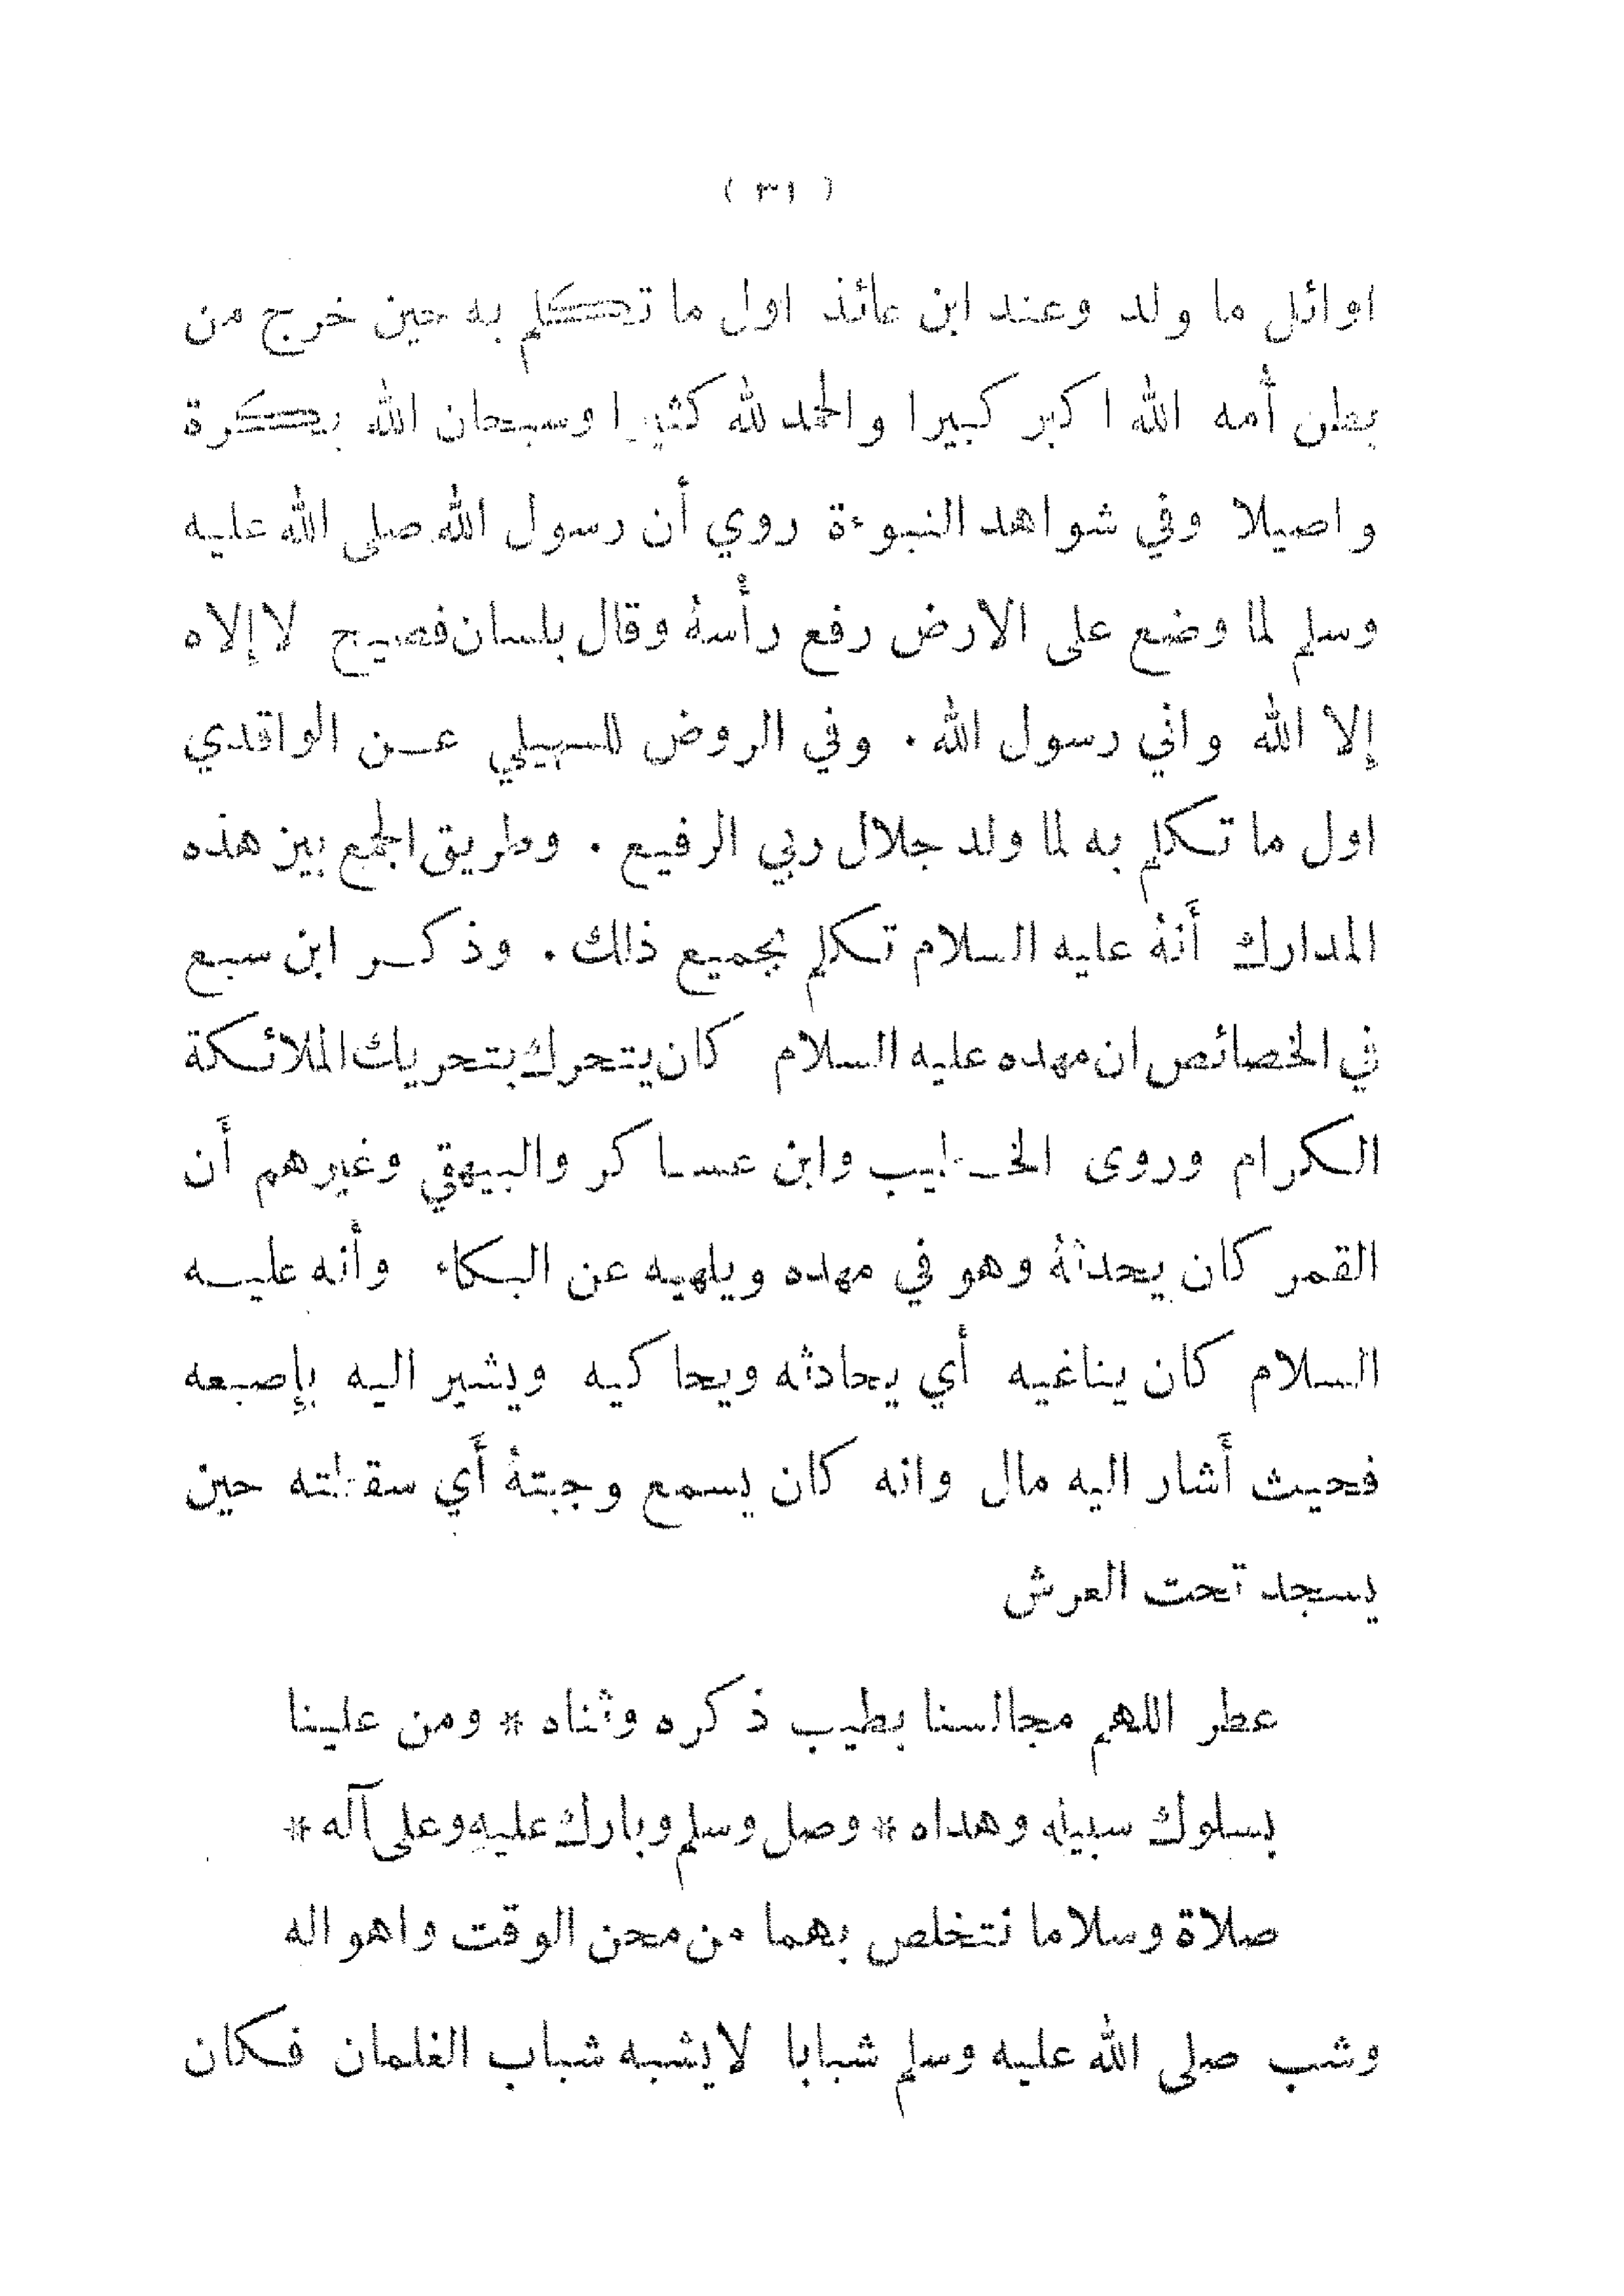 ( ٣١ )
اوائل ما ولد وعند ابن عائذ اول ما تكلم به حين خرج من
بطن أمه الله اكبر كبيرا والحمد لله كثيرا وسبحان الله بكرة
واصيلا وفي شواهد النبوءة روي أن رسول الله صلى الله عليه
وسلم لما وضع على الارض رفع رأسهُ وقال بلسان فصيح لا إلاه
إلا الله واني رسول الله . وفي الروض للسهيلي عن الواقدي
اول ما تكلم به لما ولد جلال ربي الرفيع . وطريق الجمع بين هذه
المدارك أَنهُ عليه السلام تكلم بجميع ذلك . وذكر ابن سبع
في الخصائص ان مهده عليه السلام كان يتحرك بتحريك الملائكة
الكرام وروى الخطيب وابن عساكر والبيهقي وغيرهم أَن
القمر كان يحدثهُ وهو في مهده ويلهيه عن البكاء وأنه عليه
السلام كان يناغيه أي يحادثه ويحاكيه ويشير اليه بإصبعه
فحيث أَشار اليه مال وانه كان يسمع وجبتهُ أَي سقطته حين
يسجد تحت العرش
عطر اللهم مجالسنا بطيب ذكره وثناه * ومن علينا
بسلوك سبيله وهداه * وصل وسلم وبارك عليه وعلى آله *
صلاة وسلاما نتخلص بهما من محن الوقت واهواله
وشب صلى الله عليه وسلم شبابا لايشبه شباب الغلمان فكان